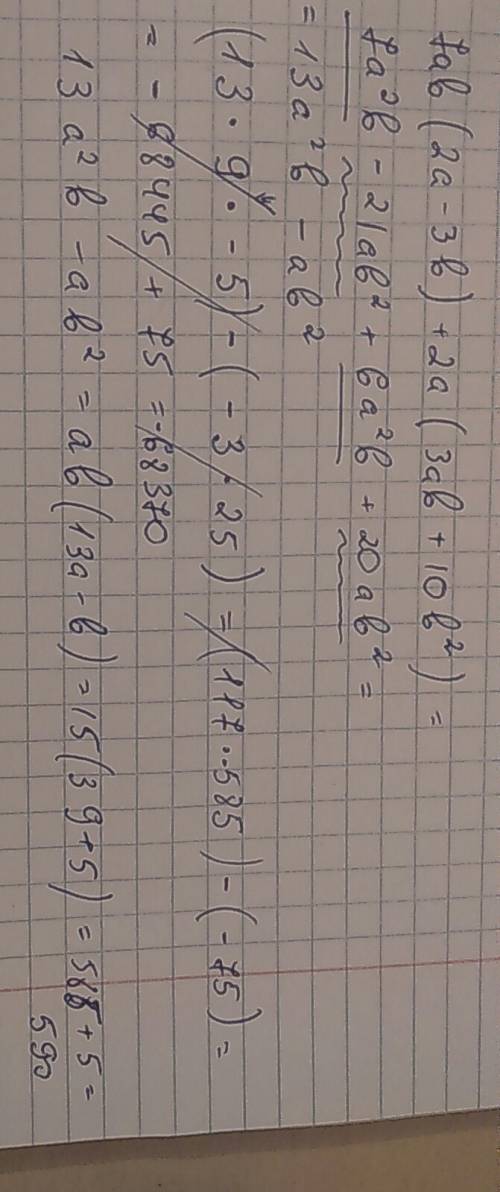 7ab (2a - 3b) + 2a (3ab + 10b²) =
7a²b - 21ab² + 6a²b + 20ab² =
= 13a²b - ab²
(13 · 9 · -5) - (-3 · 25) = (117 · -585) - (-75) =
= - 68445 + 75 = -68370
13a²b - ab² = ab (13a - b) = 15 (39 + 5) = 585 + 5 =
590